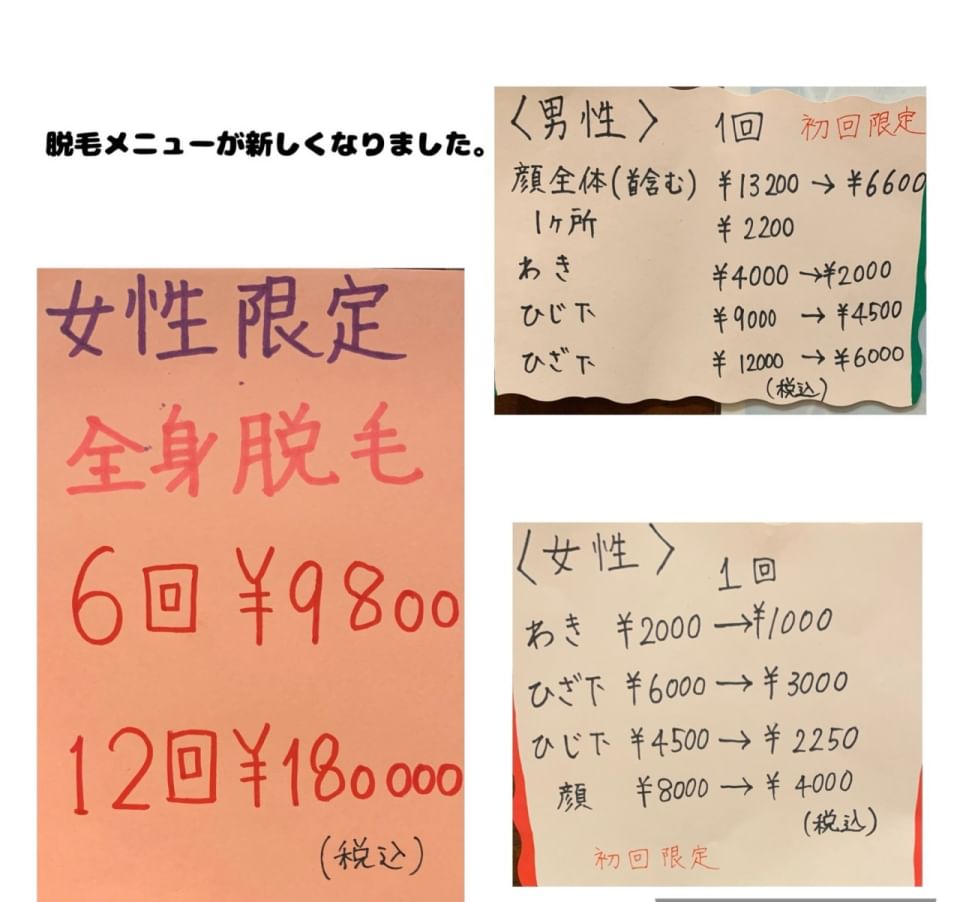 脱毛メニューが新しくなりました。
女性限定
全身脱毛
6回 ¥9800
12回 ¥180000
(税込)
〈男性〉 1回 初回限定
顔全体(首含む) ¥13200 → ¥6600
1ヶ所 ¥2200
わき ¥4000 → ¥2000
ひじ下 ¥9000 → ¥4500
ひざ下 ¥12000 → ¥6000
(税込)
〈女性〉 1回
わき ¥2000 → ¥1000
ひざ下 ¥6000 → ¥3000
ひじ下 ¥4500 → ¥2250
顔 ¥8000 → ¥4000
(税込)
初回限定